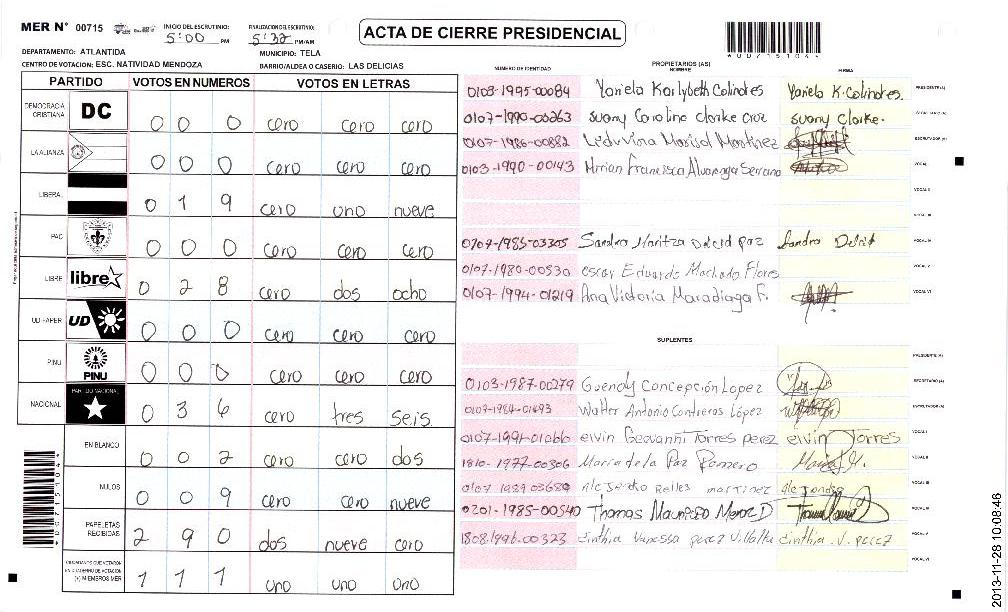 MER N° 00715
INICIO DEL ESCRUTINIO: 5:00 PM
FINALIZACION DEL ESCRUTINIO: 5:32 PM/AM
ACTA DE CIERRE PRESIDENCIAL
DEPARTAMENTO: ATLANTIDA
MUNICIPIO: TELA
CENTRO DE VOTACION: ESC. NATIVIDAD MENDOZA
BARRIO/ALDEA O CASERIO: LAS DELICIAS
PARTIDO VOTOS EN NUMEROS VOTOS EN LETRAS
DEMOCRACIA CRISTIANA DC 0 0 0 cero cero cero
LA ALIANZA 0 0 0 cero cero cero
LIBERAL 0 1 9 cero uno nueve
PAC 0 0 0 cero cero cero
LIBRE libre 0 2 8 cero dos ocho
UD-FAPER UD 0 0 0 cero cero cero
PINU PINU 0 0 0 cero cero cero
NACIONAL PARTIDO NACIONAL 0 3 6 cero tres seis
EN BLANCO 0 0 2 cero cero dos
NULOS 0 0 9 cero cero nueve
PAPELETAS RECIBIDAS 2 9 0 dos nueve cero
CIUDADANOS QUE VOTARON EN CUADERNO DE VOTACION (+) MIEMBROS MER 1 1 1 uno uno uno
NUMERO DE IDENTIDAD PROPIETARIOS (AS) NOMBRE FIRMA
0103-1995-00084 Yariela Karlybeth Colindres Yariela K. Colindres. PRESIDENTE (A)
0107-1990-00263 suany Carolina clarke Cruz suany clarke. SECRETARIO (A)
0107-1986-00882 Marisol Martinez ESCRUTADOR (A)
0103-1990-00143 Mirian Francisca Alvarenga Serrano VOCAL I
VOCAL II
VOCAL III
0107-1985-03305 Sandra Maritza David paz Sandra David VOCAL IV
0107-1980-00530 oscar Eduardo Machado Flores VOCAL V
0107-1994-01219 Ana Victoria Maradiaga F. VOCAL VI
SUPLENTES
PRESIDENTE (A)
0103-1987-00279 Guendy Concepción Lopez SECRETARIO (A)
0107-1984-01493 Walter Antonio Contreras López ESCRUTADOR (A)
0107-1991-01066 elvin Geovanni Torres perez elvin Torres VOCAL I
1810-1977-00306 Maria de la Paz Romero VOCAL II
0107 1989 03680 Alejandro Relles martinez Alejandro VOCAL III
0201-1985-00540 Thomas VOCAL IV
1808 1996-00323 Cinthia Vanessa perez Villalta Cinthia. V. perez VOCAL V
VOCAL VI
2013-11-28 10:08:46